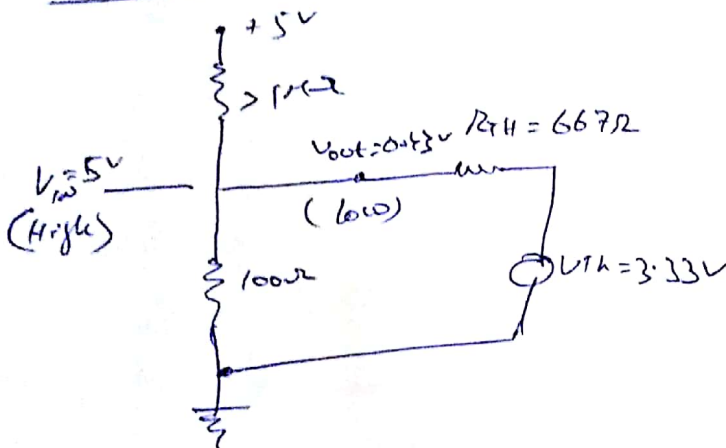 +5V
>1MΩ
Vout=0.43V RTH = 667Ω
Vin=5V
(High)
(low)
100Ω
VTh=3.33V